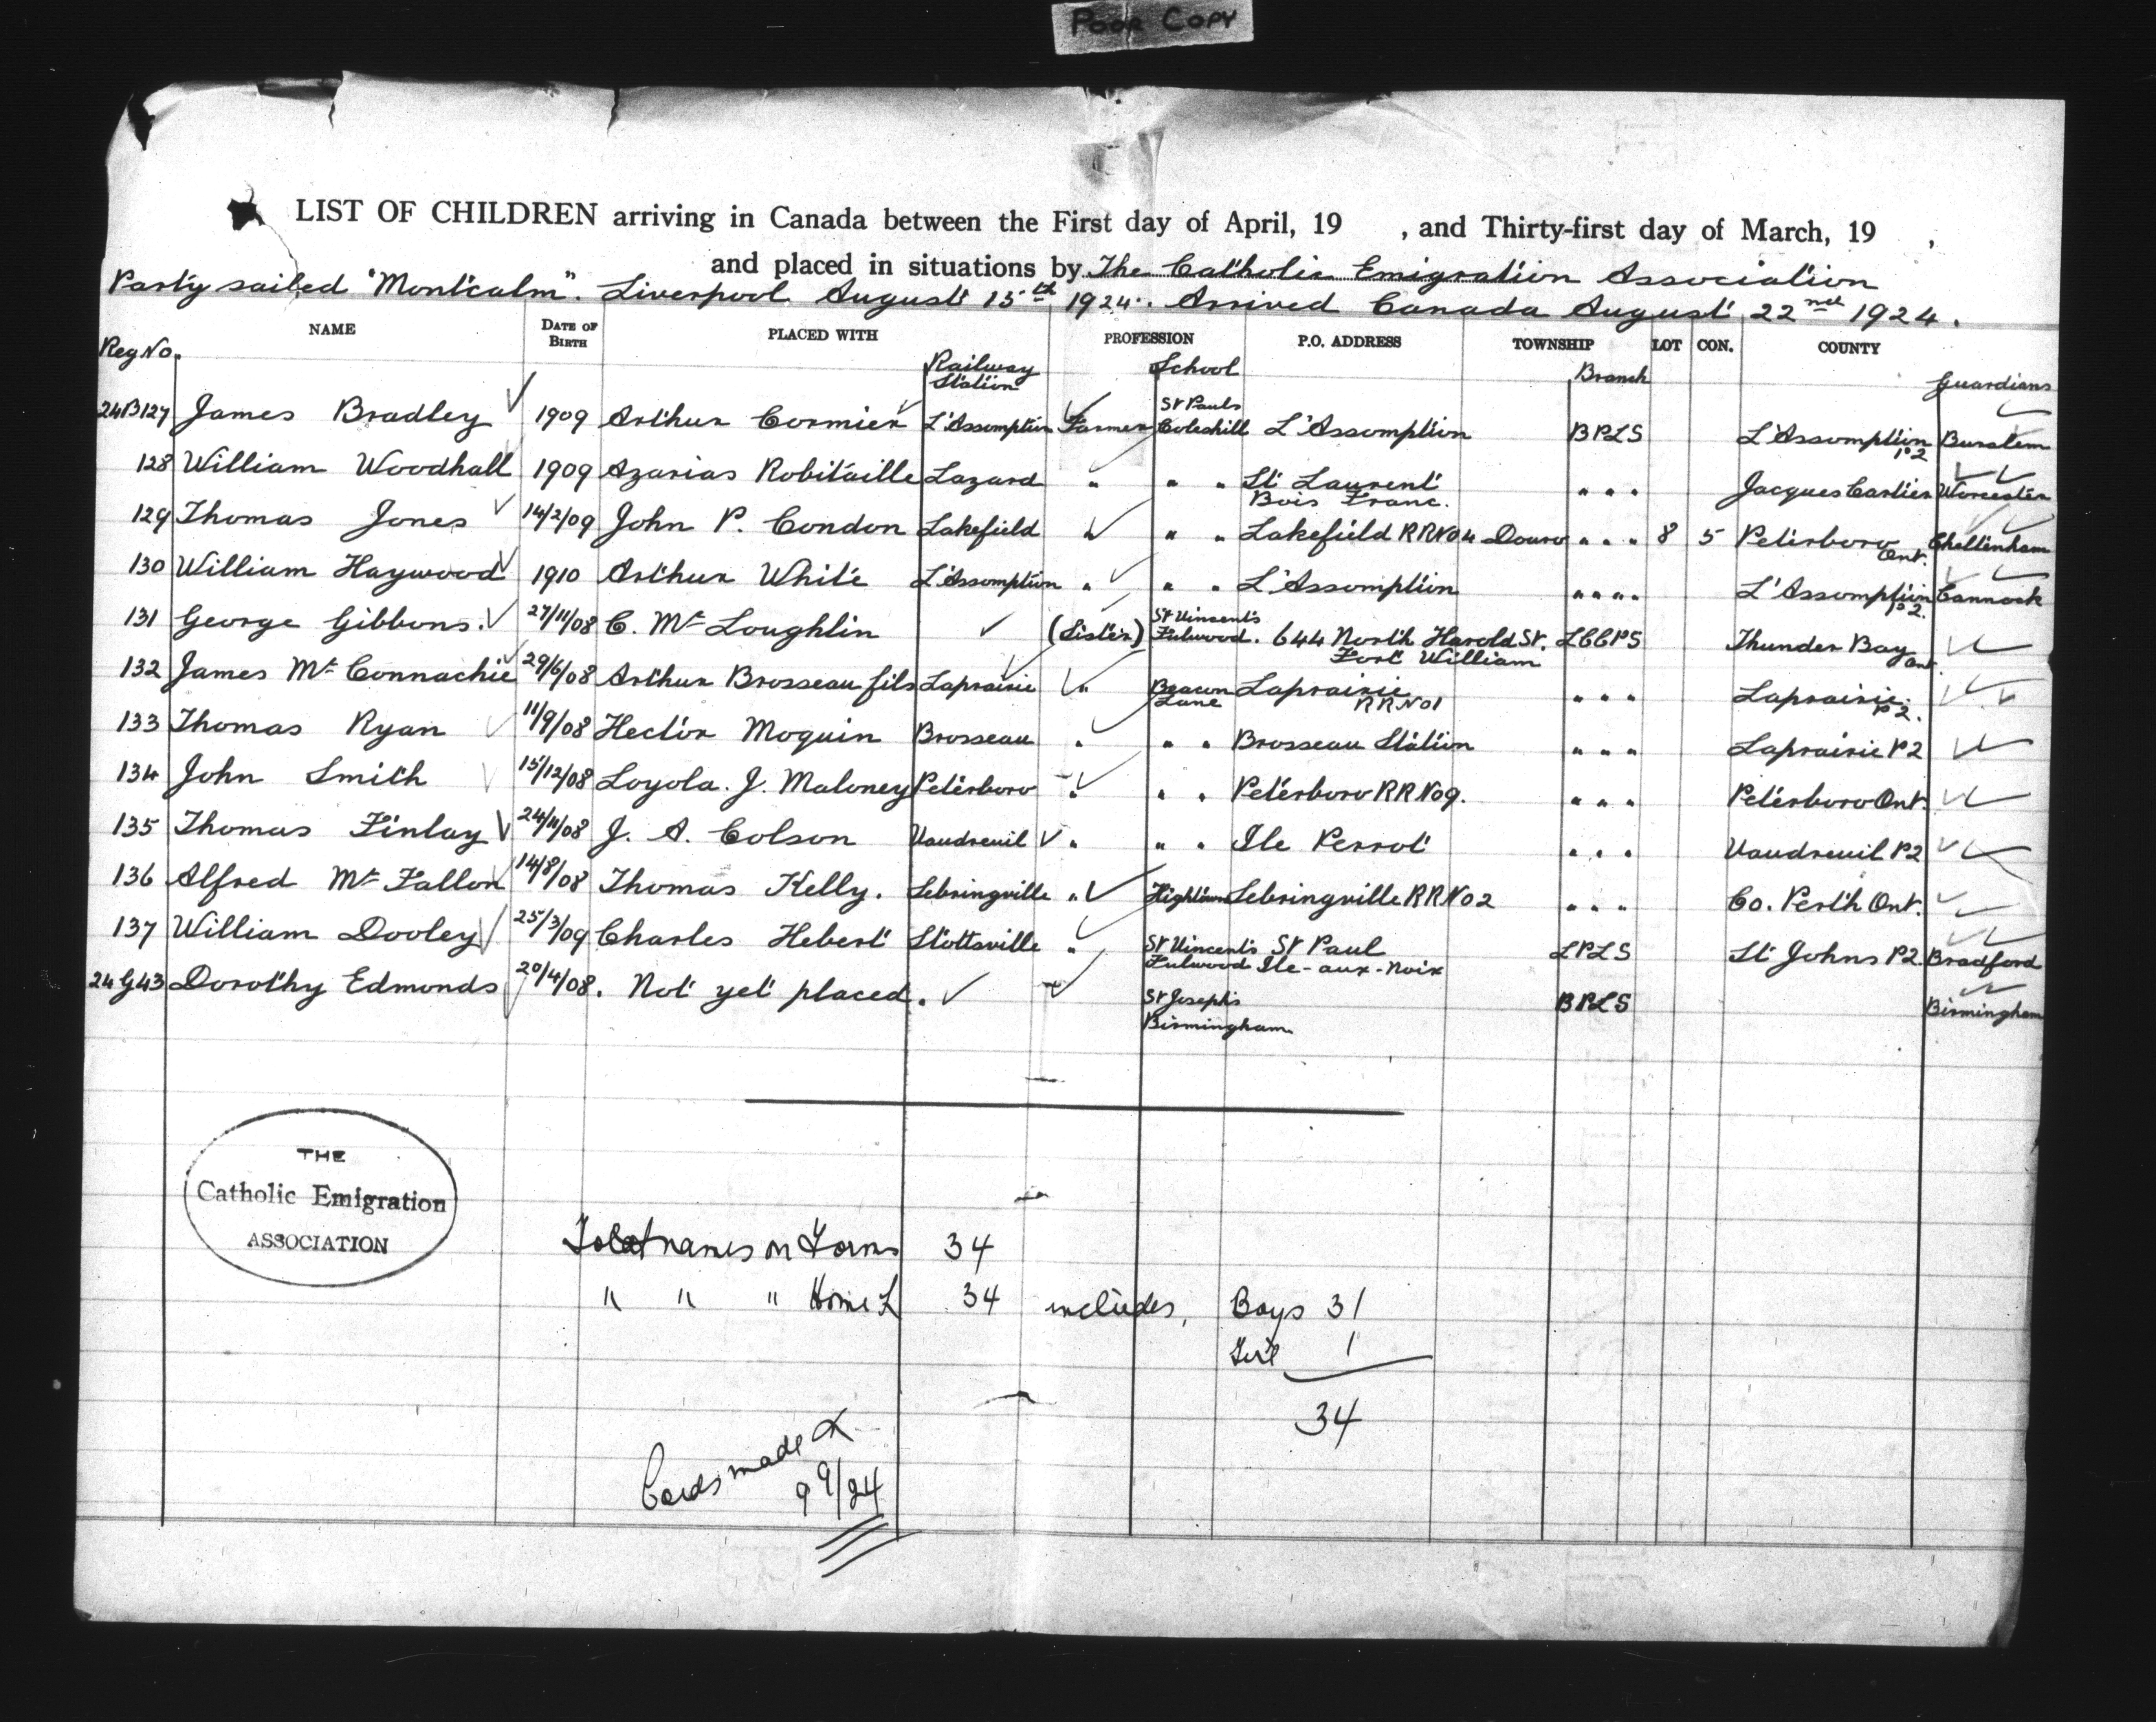 POOR COPY
LIST OF CHILDREN arriving in Canada between the First day of April, 19 , and Thirty-first day of March, 19 ,
and placed in situations by The Catholic Emigration Association
Party sailed "Montcalm". Liverpool August 15th 1924. Arrived Canada August 22nd 1924.
Reg No. NAME DATE OF BIRTH PLACED WITH Railway Station PROFESSION School P.O. ADDRESS TOWNSHIP Branch LOT CON. COUNTY Guardians
24B127 James Bradley 1909 Arthur Cormier L'Assomption Farmer St Pauls Coleshill L'Assomption BPLS L'Assomption P2 Burslem
128 William Woodhall 1909 Azarias Robitaille Lazard " " " St Laurent Bois Franc. " " " Jacques Cartier Worcester
129 Thomas Jones 14/2/09 John P. Condon Lakefield " " " Lakefield RRNo4 Douro " " " 8 5 Peterboro Ont. Cheltenham
130 William Haywood 1910 Arthur White L'Assomption " " " L'Assomption " " " " L'Assomption P2. Cannock
131 George Gibbons. 27/11/08 C. Mc Loughlin (Sister) St Vincent's Fulwood. 644 North Harold St. Fort William LCCPS Thunder Bay Ont
132 James Mc Connachie 29/6/08 Arthur Brosseau fils Laprairie " Beacon Lane Laprairie RRNo1 " " " Laprairie P2.
133 Thomas Ryan 11/9/08 Hector Moquin Brosseau " " " Brosseau Station " " " Laprairie P2
134 John Smith 15/12/08 Loyola. J. Maloney Peterboro " " " Peterboro RRNo9. " " " Peterboro Ont.
135 Thomas Finlay 24/11/08 J. A. Colson Vaudreuil " " " Ile Perrot " " " Vaudreuil P2
136 Alfred Mc Fallon 14/8/08 Thomas Kelly. Sebringville " Hightown Sebringville RRNo2 " " " Co. Perth Ont.
137 William Dooley 25/3/09 Charles Hebert Stottsville " St Vincent's Fulwood St Paul Ile-aux-Noix LPLS St Johns P2. Bradford
24G43 Dorothy Edmonds 20/4/08. Not yet placed. St Joseph's Birmingham BPLS Birmingham
THE
Catholic Emigration
ASSOCIATION
Total names on Forms 34
" " " Home L 34 includes, Boys 31
Girl 1
34
Cards made
9 9/24